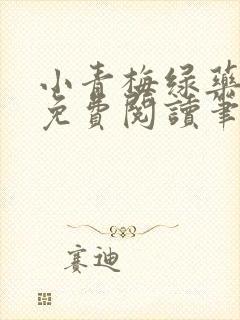 小青梅绿藥
免費閱讀筆
賽迪